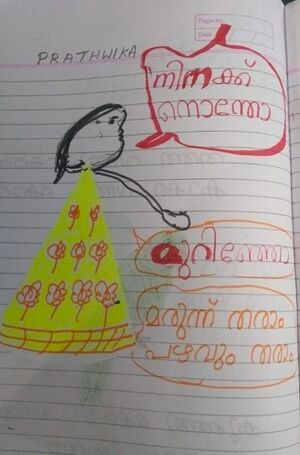 Page No.
Date
PRATHWIKA
നിനക്ക്
നൊന്തോ
മുറിഞ്ഞോ
മരുന്ന് തരാം
പഴവും തരാം